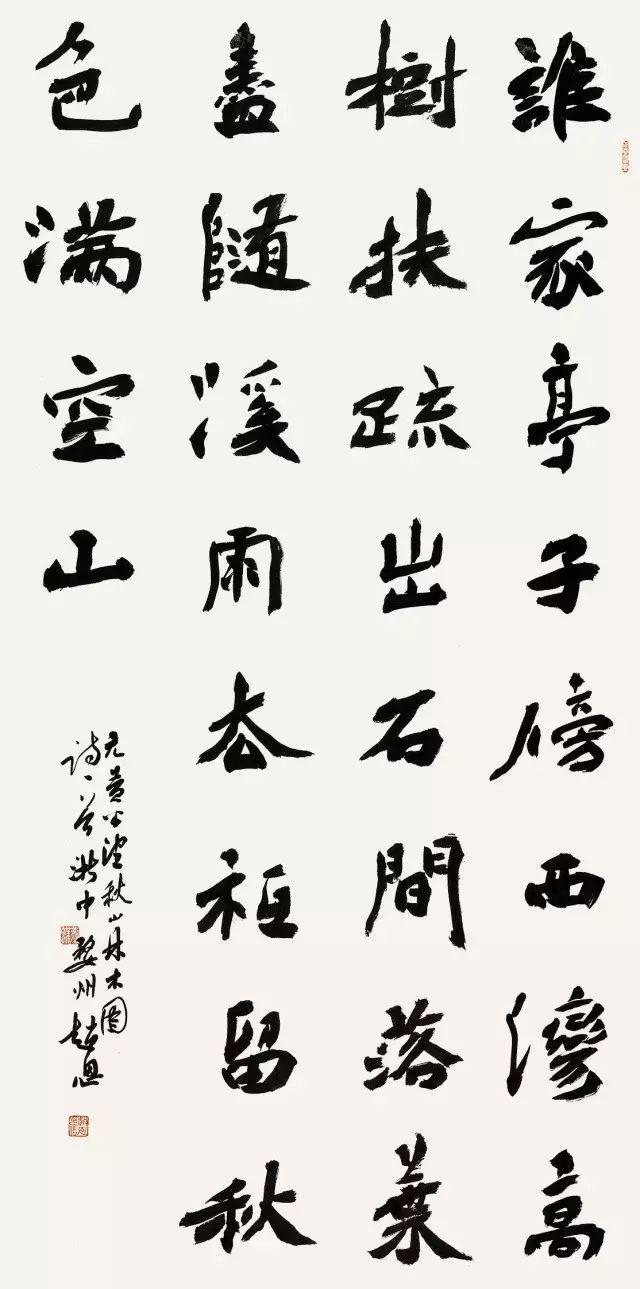 誰家亭子傍西灣高
樹扶疏出石間落葉
盡隨溪雨去祗留秋
色滿空山
元黄公望秋山林木圖
詩一首浙中婺州趙